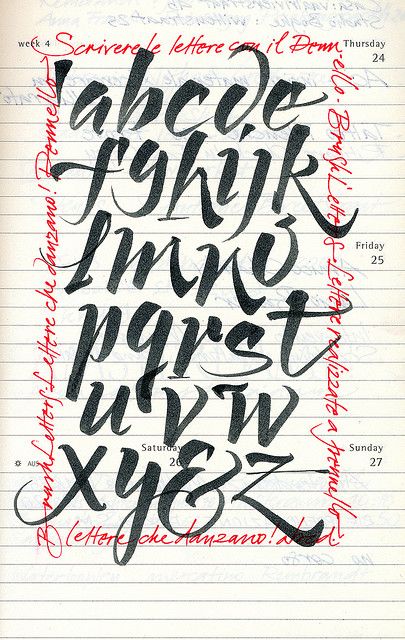 week 4
Scrivere le lettere con il Penn
Thursday
24
ello. Brush Letters - Lettere realizzate a pennello
abcde
fghijk
Friday
25
lmno
pqrst
uvw
Saturday
26
Sunday
27
AUS
xy&z
Brush Letters. Lettere che danzano! Pennello
lettere che danzano! abcd